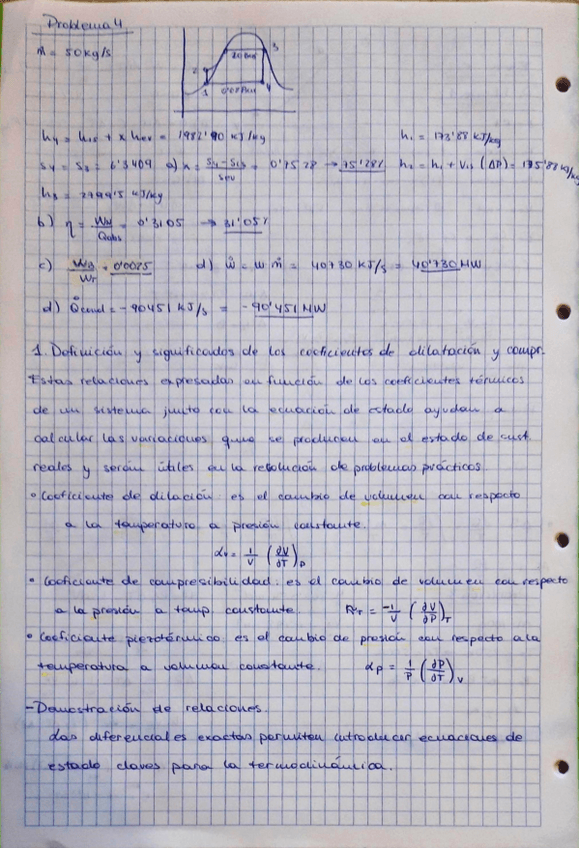 Problema 4
ṁ = 50 kg/s
20 Bar
3
2
0'08 Bar
1
4
h4 = h1s + x hev = 1982'90 KJ/kg
h1 = 173'88 KJ/kg
s4 = s3 = 6'3409 a) x = (s4 - s1s)/sev = 0'7528 → 75'28% h2 = h1 + v1s (ΔP) = 175'89 KJ/kg
h3 = 2799'5 KJ/kg
b) η = WN/Qabs = 0'3105 → 31'05%
c) WB/WT = 0'0025 d) Ẇ = w ṁ = 40730 KJ/s = 40'730 MW
d) Q̇cond = -90451 KJ/s = -90'451 MW
1. Definición y significados de los coeficientes de dilatación y compr.
Estas relaciones expresadas en función de los coeficientes térmicos
de un sistema junto con la ecuación de estado ayudan a
calcular las variaciones que se producen en el estado de sust.
reales y serán útiles en la resolución de problemas prácticos.
• Coeficiente de dilación: es el cambio de volumen con respecto
a la temperatura a presión constante.
αv = 1/V (∂V/∂T)P
• Coeficiente de compresibilidad: es el cambio de volumen con respecto
a la presión a temp. constante. KT = -1/V (∂V/∂P)T
• Coeficiente piezotérmico: es el cambio de presión con respecto a la
temperatura a volumen constante. αP = 1/P (∂P/∂T)V
- Demostración de relaciones.
Las diferenciales exactas permiten introducir ecuaciones de
estado claves para la termodinámica.